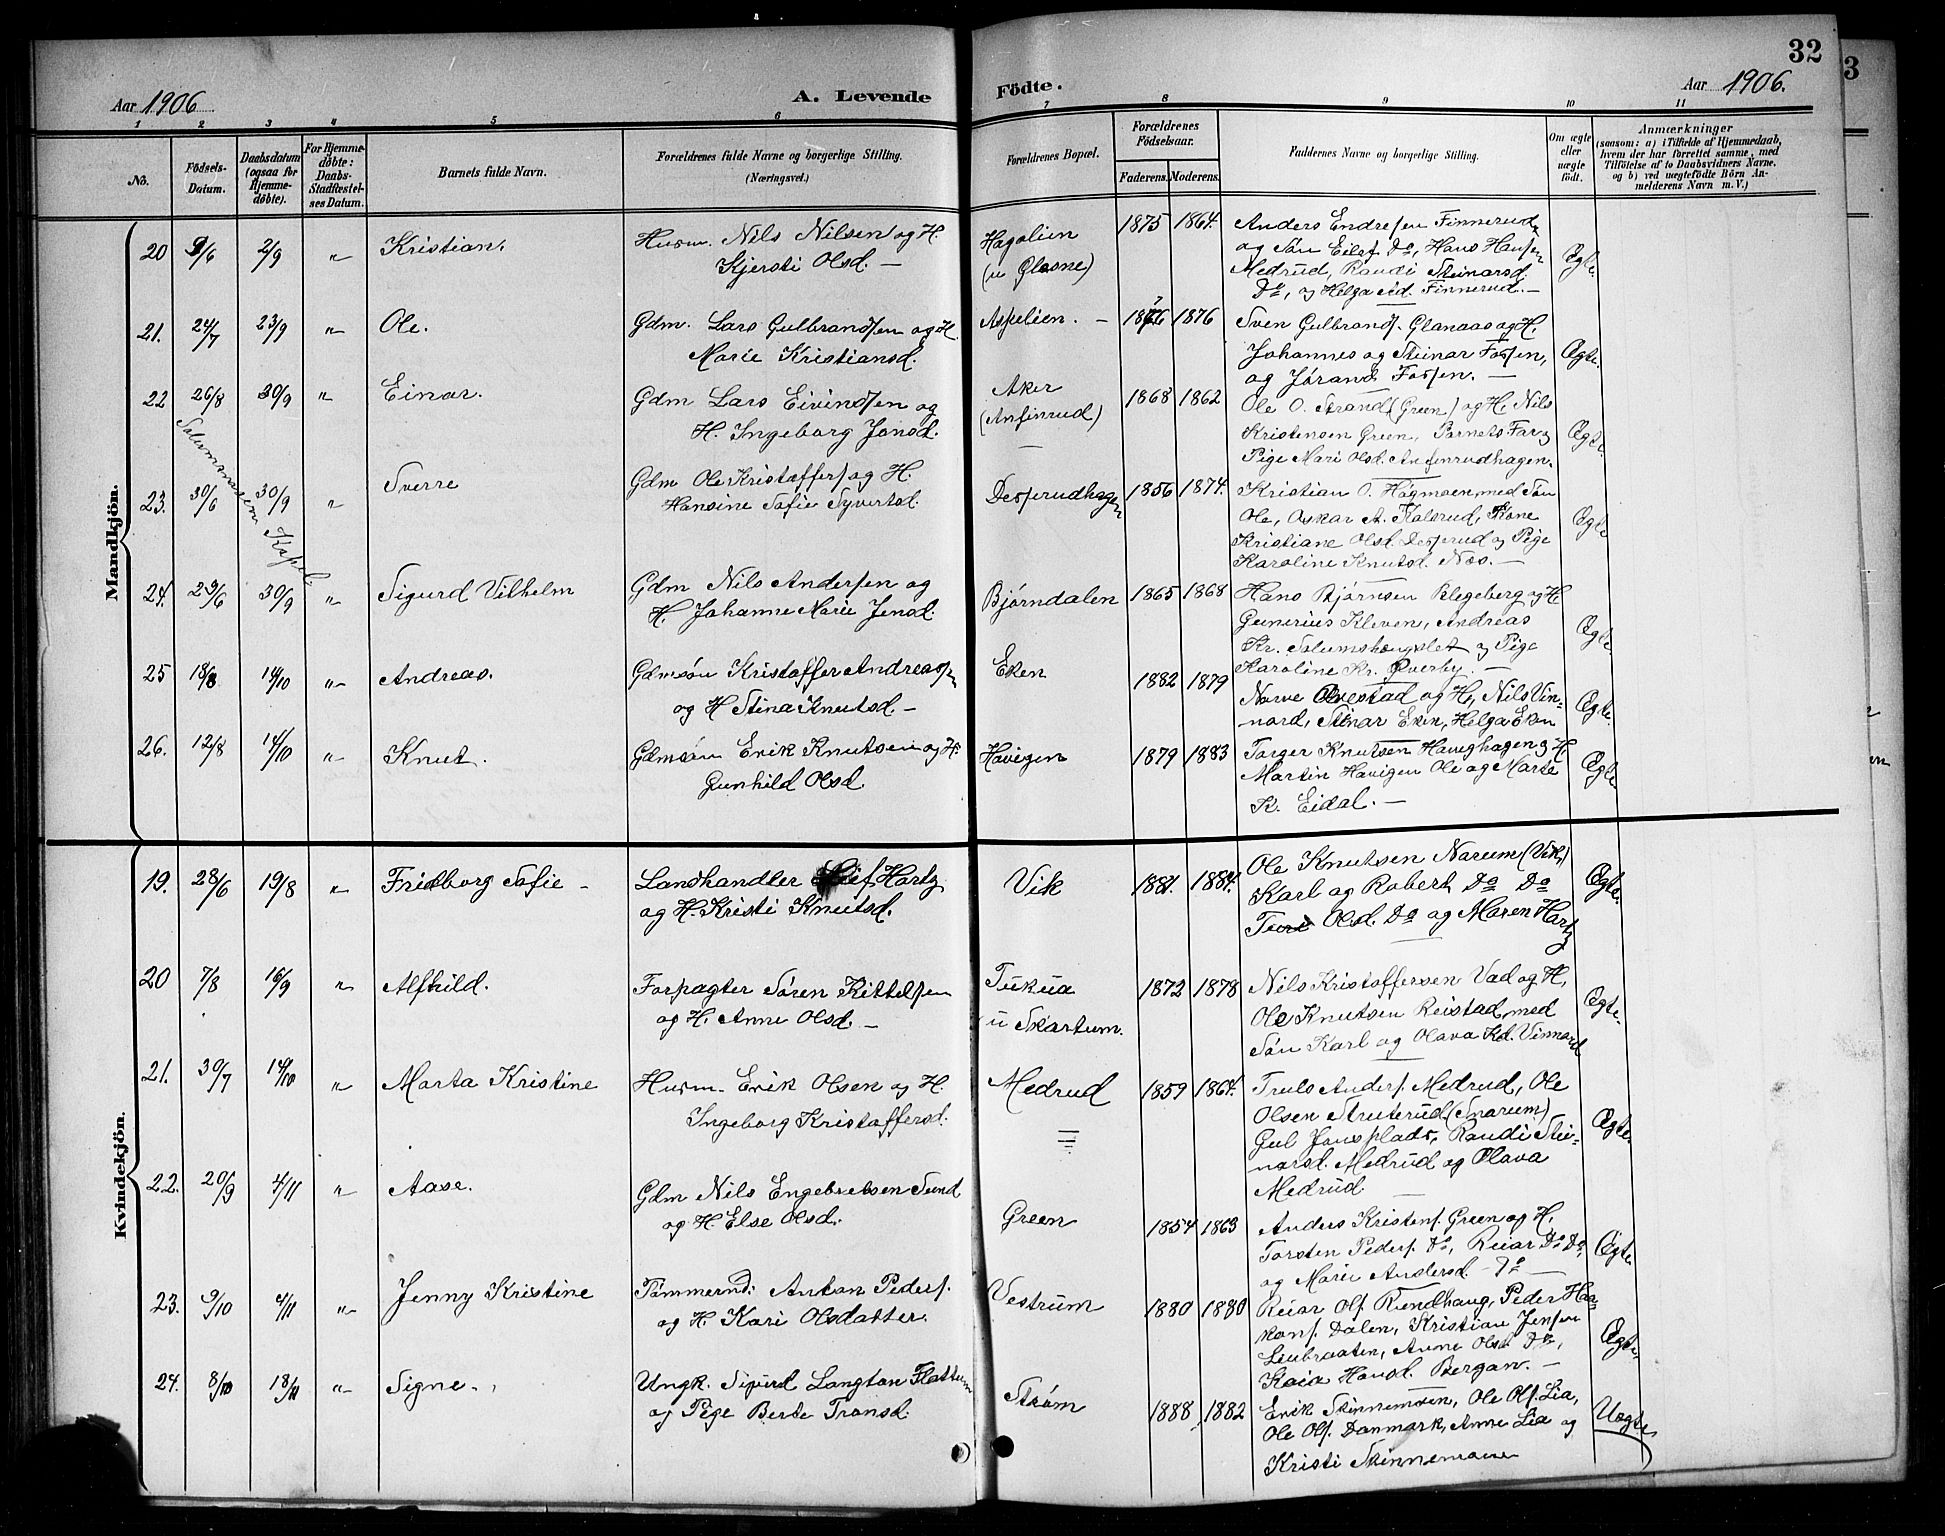 32
3
Aar 1906
A. Levende
Födte.
Aar 1906.
1 2 3 4 5 6 7 8 9 10 11
No.
Födsels-
Datum.
Daabsdatum
(ogsaa for
Hjemme-
döbte).
For Hjemme-
döbte:
Daabs-
Stadfæstel-
ses Datum.
Barnets fulde Navn.
Forældrenes fulde Navne og borgerlige Stilling.
(Næringsvei.)
Forældrenes Bopæl.
Forældrenes
Födselsaar.
Faderens. Moderens.
Faddernes Navne og borgerlige Stilling.
Om ægte
eller
uægte
födt.
Anmærkninger
(saasom: a) i Tilfælde af Hjemmedaab,
hvem der har forrettet samme, med
Tilföielse af to Daabsvidners Navne,
og b) ved uægtefödte Börn An-
melderens Navn m. V.)
Mandkjön.
20 9/6 2/9 " Kristian.
Husm. Nils Nilsen og H.
Kjersti Olsd. —
Hagalien
(u Glesne)
1875 1864.
Anders Endresen Finnerud
og Søn Eilef Do, Hans Hansen
Medrud, Randi Steinarsd.
Do, og Helga Finnerud. —
Ægte.
21. 24/7 23/9 " Ole.
Gdm. Lars Gulbrandsen og H.
Marie Kristiansd.
Aspelien. —
1876 1876
Sven Gulbrands. Glanaas og H.
Johannes og Steinar Fossen,
og Jørand Fossen. —
Ægte.
22 26/8 30/9 " Einar.
Gdm Lars Eivindsen og
H. Ingeborg Jonsd.
Aker
(Anfinrud)
—
1868 1862
Ole O. Strand (Green) og H. Nils
Kristensen Green, Barnets Far og
Pige Mari Olsd. Anfinrudhagen.
Ægte.
Solumsmoen Kapel.
23. 30/6 30/9 " Sverre
Gdm Ole Kristoffers. og H.
Hansine Sofie Syvertsd.
Desserudhagen
1856 1874.
Kristian O. Høgmoen med Søn
Ole, Oskar A. Kolsrud, Kone
Kristiane Olsd. Desserud og Pige
Karoline Knutsd. Næs. —
Ægte
24. 23/6 30/9 " Sigurd Vilhelm
Gdm Nils Andersen og
H. Johanne Marie Jensd.
Bjørndalen
1865 1868
Hans Bjørnsen Blegeberg og H.
Gunerius Kleven, Andreas
Kr. Solumshaugslet og Pige
Karoline Kr. Øverby. —
Ægte
25 18/8 14/10 " Andreas.
Gdmsøn Kristoffer Andreassen
og H Stina Knutsd. —
Eken
1882 1879
Narve Ovestad og H, Nils Vin-
nord, Steinar Eken, Helga Eken
Ægte.
26. 12/8 14/10 " Knut.
Gdmsøn Erik Knutsen og H.
Gunhild Olsd.
Havigen
1879 1883
Torger Knutsen Haveghagen og H.
Martin Havigen Ole og Marte
K. Eidal. —
Ægte
Kvindekjön.
19. 28/6 19/8 " Fridborg Sofie —
Landhandler Leif Hartz
og H. Kristi Knutsd.
Vik
1881. 1884.
Ole Knutsen Narum (Vik,)
Karl og Robert Do Do
Turi Olsd. Do og Maren Hartz
Ægte.
20 7/8 16/9 " Alfhild.
Forpagter Søren Kittelsen
og H. Anne Olsd. —
Tukua
u Skartum.
1872 1878
Nils Kristoffersen Vad og H,
Ole Knutsen Reistad, med
Søn Karl og Olava Kd. Vinnard
Ægte.
21. 30/7 14/10 " Marta Kristine
Husm. Erik Olsen og H.
Ingeborg Kristoffersd.
Medrud
1859 1864.
Truls Anders. Medrud, Ole
Olsen Struterud (Snarum)
Gul Jonsplads, Randi Stei-
narsd. Medrud og Olava
Medrud.
Ægte.
22. 20/9 4/11 " Aase.
Gdm Nils Engebretsen Sund
og H Else Olsd.
Green
1854 1863
Anders Kristens. Green og H.
Torsten Peders. Do, Reiar Do Do,
og Marie Andersd. Do —
Ægte
23. 9/10 4/11 " Jenny Kristine
Tømmermd: Anton Peders.
og H. Kari Olsdatter.
Vestrum
1880 1880
Reiar Ols. Rundhaug, Peder Haa-
kons. Dalen, Kristian Jensen
Liubraaten, Anne Olsd Do,
Kaia Hansd. Bergan. —
Ægte
24. 8/10 18/11 " Signe. ,
Ungk. Sigurd Langton Flattum
og Pige Berte Transd.
Strøm
1888 1882
Erik Skinnemoen, Ole Ols. Lia,
Ole Ols. Danmark, Anne Lia og
Kristi Skinnemoen
Uægte